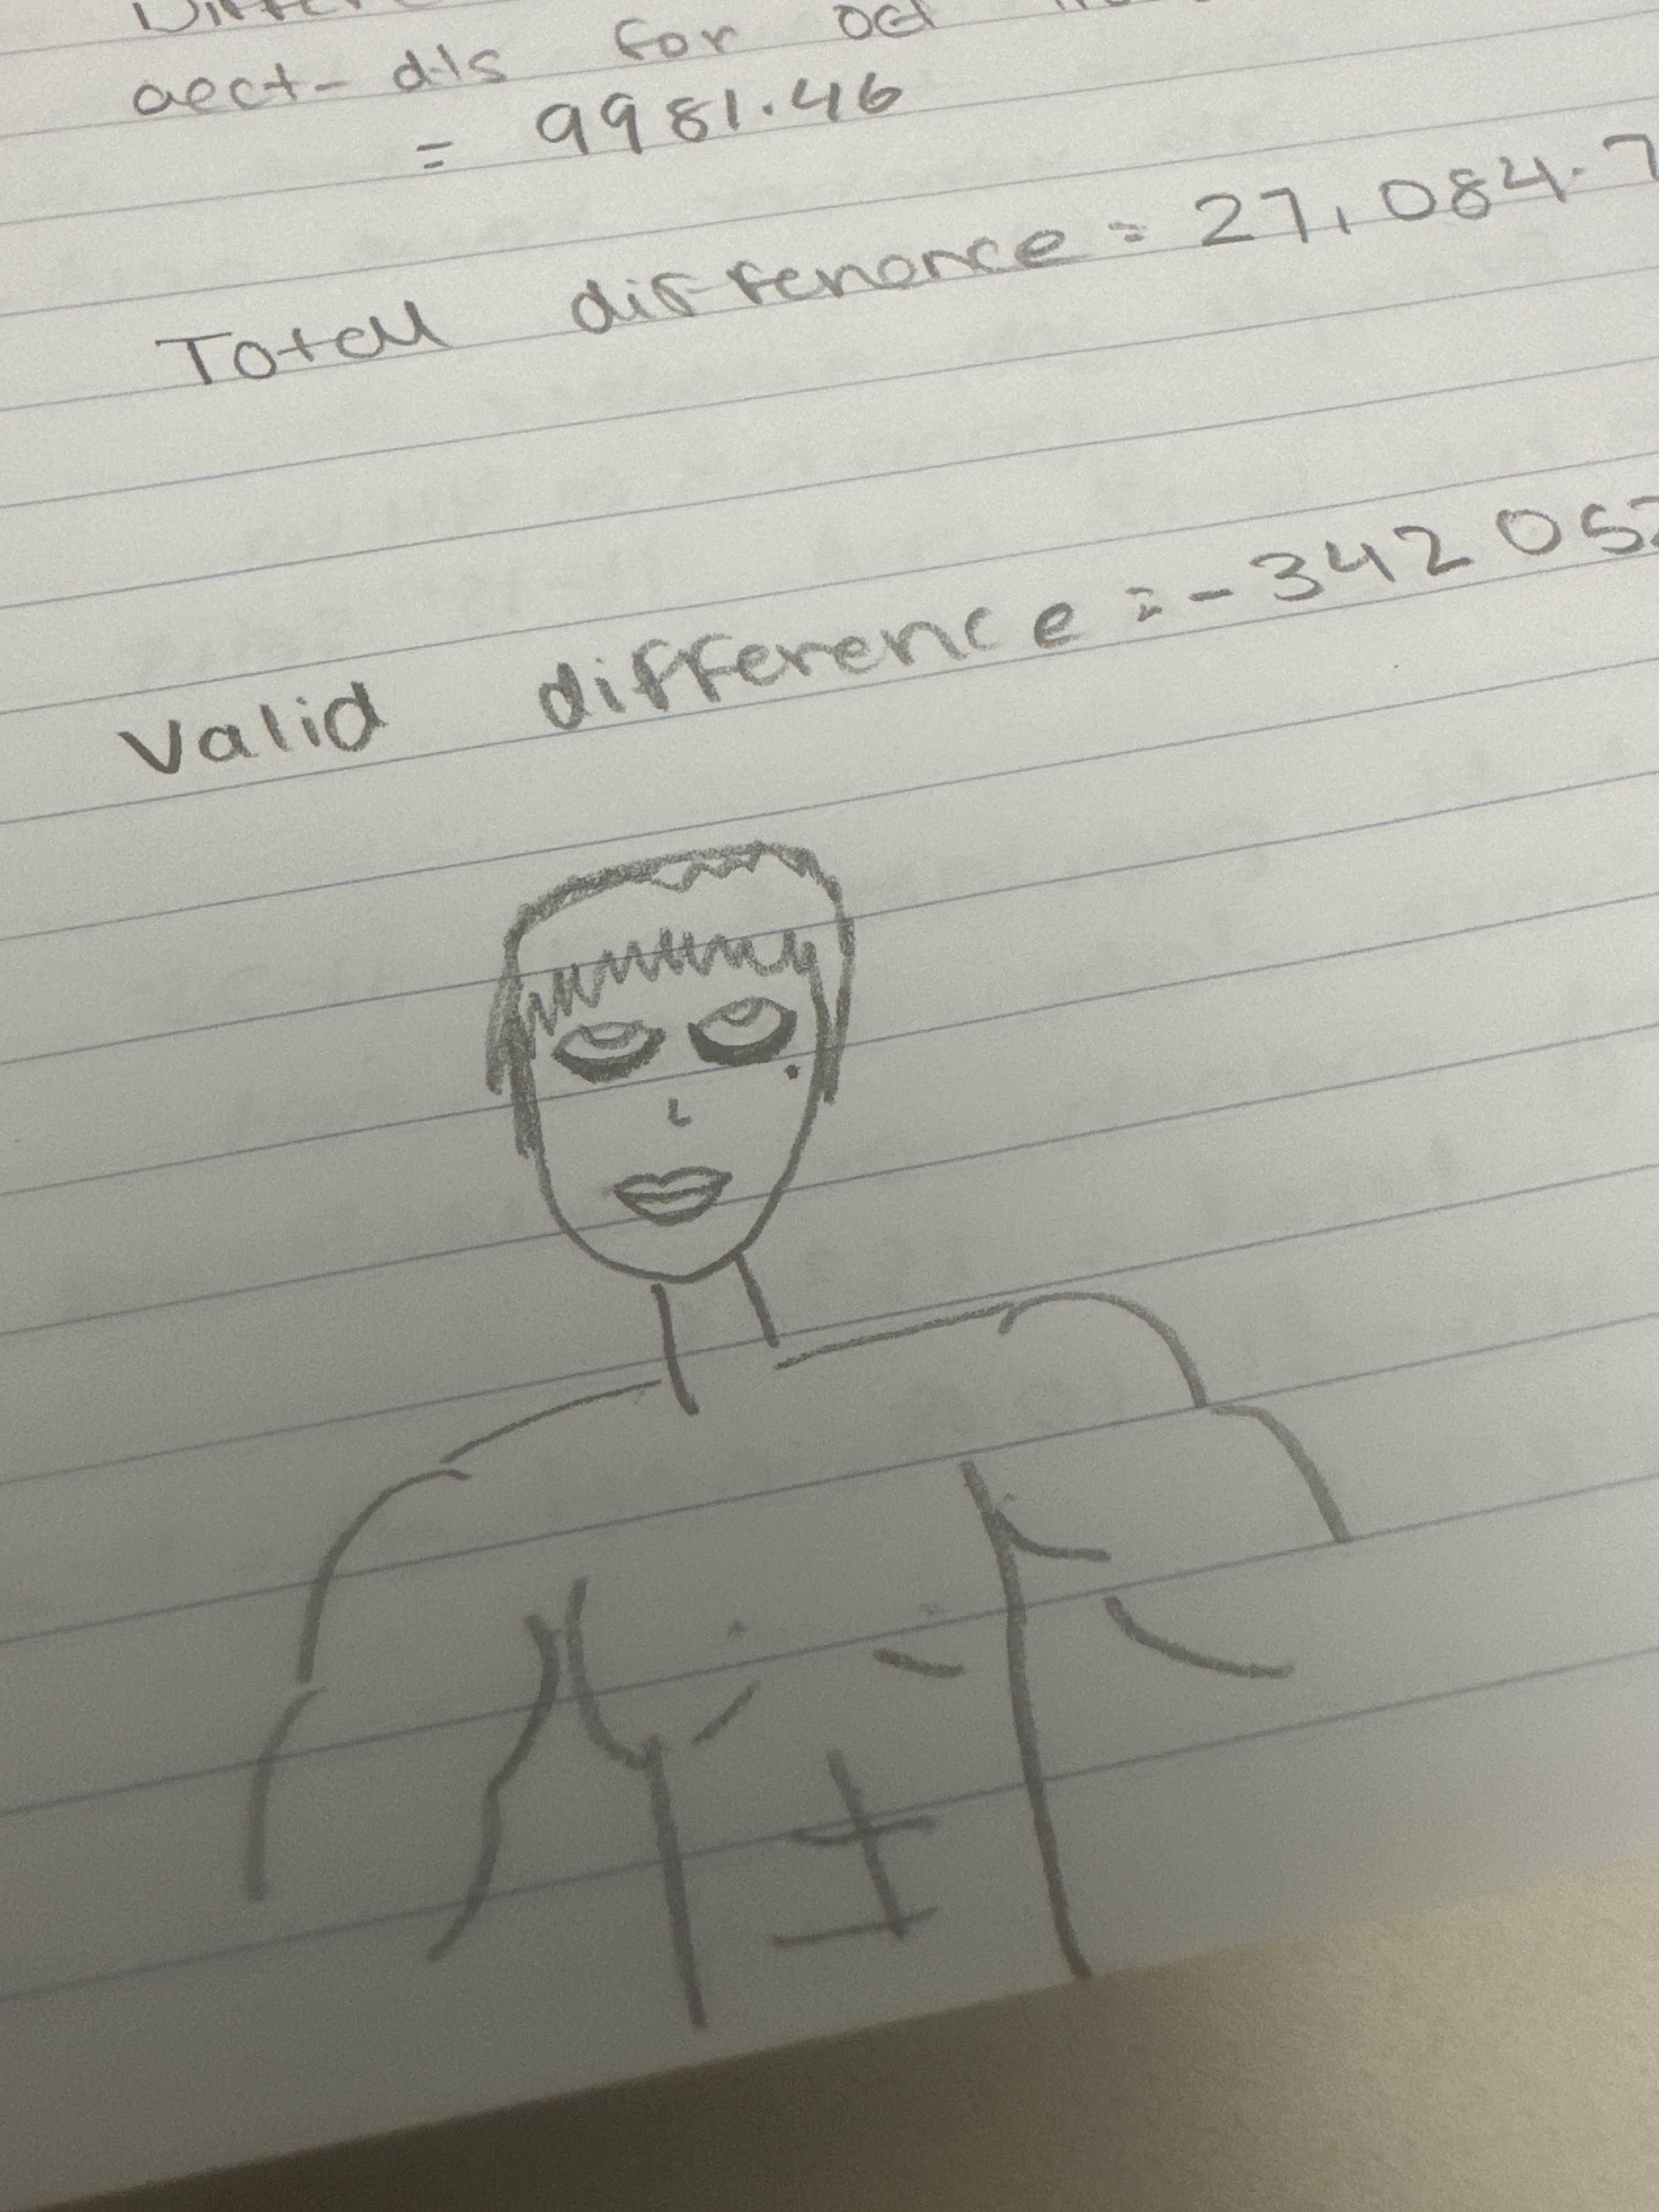 aect-dis for oct
= 9981.46
Total differance = 27,084.7
Valid difference = -342 052